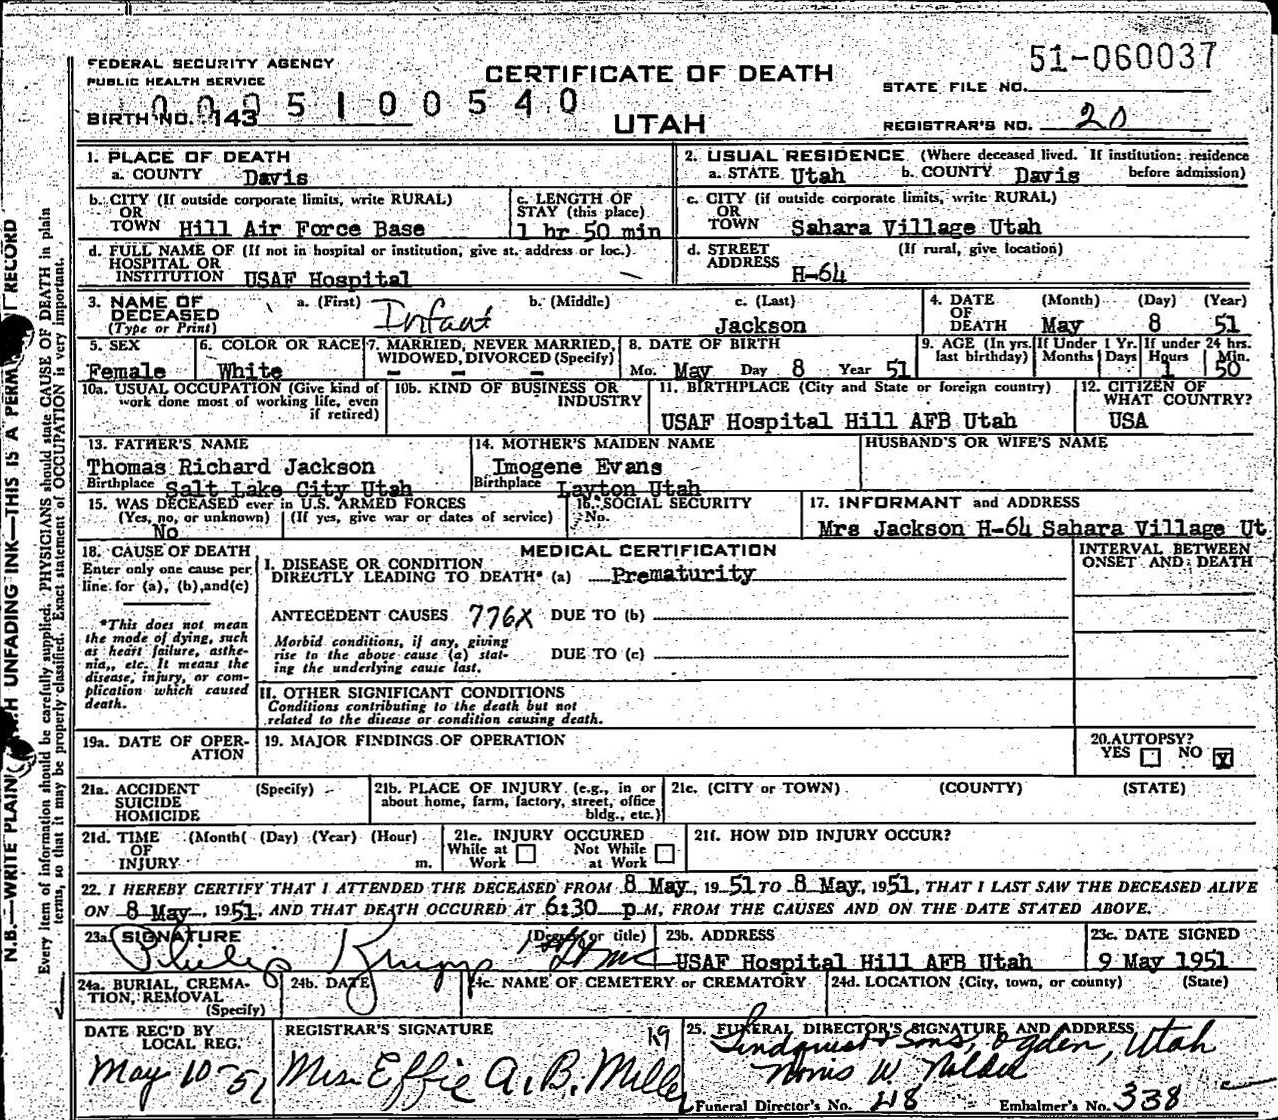 51-060037
FEDERAL SECURITY AGENCY
PUBLIC HEALTH SERVICE
CERTIFICATE OF DEATH
UTAH
STATE FILE NO.
0005100540
BIRTH NO. 143
REGISTRAR'S NO. 20
1. PLACE OF DEATH
a. COUNTY Davis
2. USUAL RESIDENCE (Where deceased lived. If institution: residence before admission)
a. STATE Utah b. COUNTY Davis
b. CITY (If outside corporate limits, write RURAL)
OR
TOWN Hill Air Force Base
c. LENGTH OF
STAY (this place)
1 hr 50 min
c. CITY (if outside corporate limits, write RURAL)
OR
TOWN Sahara Village Utah
d. FULL NAME OF (If not in hospital or institution, give st. address or loc.)
HOSPITAL OR
INSTITUTION USAF Hospital
d. STREET (If rural, give location)
ADDRESS H-64
3. NAME OF DECEASED
(Type or Print)
a. (First) b. (Middle) c. (Last)
Infant Jackson
4. DATE OF DEATH (Month) (Day) (Year)
May 8 51
5. SEX
Female
6. COLOR OR RACE
White
7. MARRIED, NEVER MARRIED,
WIDOWED, DIVORCED (Specify)
- - -
8. DATE OF BIRTH
Mo. May Day 8 Year 51
9. AGE (In yrs. last birthday) If Under 1 Yr. Months Days If under 24 hrs. Hours Min.
1 50
10a. USUAL OCCUPATION (Give kind of
work done most of working life, even
if retired)
10b. KIND OF BUSINESS OR
INDUSTRY
11. BIRTHPLACE (City and State or foreign country)
USAF Hospital Hill AFB Utah
12. CITIZEN OF
WHAT COUNTRY?
USA
13. FATHER'S NAME
Thomas Richard Jackson
Birthplace Salt Lake City Utah
14. MOTHER'S MAIDEN NAME
Imogene Evans
Birthplace Layton Utah
HUSBAND'S OR WIFE'S NAME
15. WAS DECEASED ever in U.S. ARMED FORCES
(Yes, no, or unknown) (If yes, give war or dates of service)
No
16. SOCIAL SECURITY
No.
17. INFORMANT and ADDRESS
Mrs Jackson H-64 Sahara Village Ut
18. CAUSE OF DEATH
Enter only one cause per
line for (a), (b), and (c)
*This does not mean
the mode of dying, such
as heart failure, asthe-
nia,, etc. It means the
disease, injury, or com-
plication which caused
death.
MEDICAL CERTIFICATION
I. DISEASE OR CONDITION
DIRECTLY LEADING TO DEATH* (a) Prematurity
ANTECEDENT CAUSES 776X DUE TO (b)
Morbid conditions, if any, giving
rise to the above cause (a) stat-
ing the underlying cause last.
DUE TO (c)
II. OTHER SIGNIFICANT CONDITIONS
Conditions contributing to the death but not
related to the disease or condition causing death.
INTERVAL BETWEEN
ONSET AND DEATH
19a. DATE OF OPER-
ATION
19. MAJOR FINDINGS OF OPERATION
20. AUTOPSY?
YES NO X
21a. ACCIDENT (Specify)
SUICIDE
HOMICIDE
21b. PLACE OF INJURY (e.g., in or
about home, farm, factory, street, office
bldg., etc.)
21c. (CITY or TOWN) (COUNTY) (STATE)
21d. TIME (Month( (Day) (Year) (Hour)
OF
INJURY m.
21e. INJURY OCCURED
While at Work Not While at Work
21f. HOW DID INJURY OCCUR?
22. I HEREBY CERTIFY THAT I ATTENDED THE DECEASED FROM 8 May, 1951 TO 8 May, 1951, THAT I LAST SAW THE DECEASED ALIVE
ON 8 May, 1951, AND THAT DEATH OCCURED AT 6:30 p.M, FROM THE CAUSES AND ON THE DATE STATED ABOVE.
23a. SIGNATURE (Degree or title)
Philip
23b. ADDRESS
USAF Hospital Hill AFB Utah
23c. DATE SIGNED
9 May 1951
24a. BURIAL, CREMA-
TION, REMOVAL
(Specify)
24b. DATE
24c. NAME OF CEMETERY or CREMATORY
24d. LOCATION (City, town, or county) (State)
DATE REC'D BY
LOCAL REG.
May 10-51
REGISTRAR'S SIGNATURE
Mrs Effie A. B. Miller
25. FUNERAL DIRECTOR'S SIGNATURE AND ADDRESS
Lindquist & Sons, Ogden, Utah
Funeral Director's No. 218 Embalmer's No. 338
N.B.—WRITE PLAIN UNFADING INK—THIS IS A PERM RECORD
Every item of information should be carefully supplied. PHYSICIANS should state CAUSE OF DEATH in plain
terms, so that it may be properly classified. Exact statement of OCCUPATION is very important.